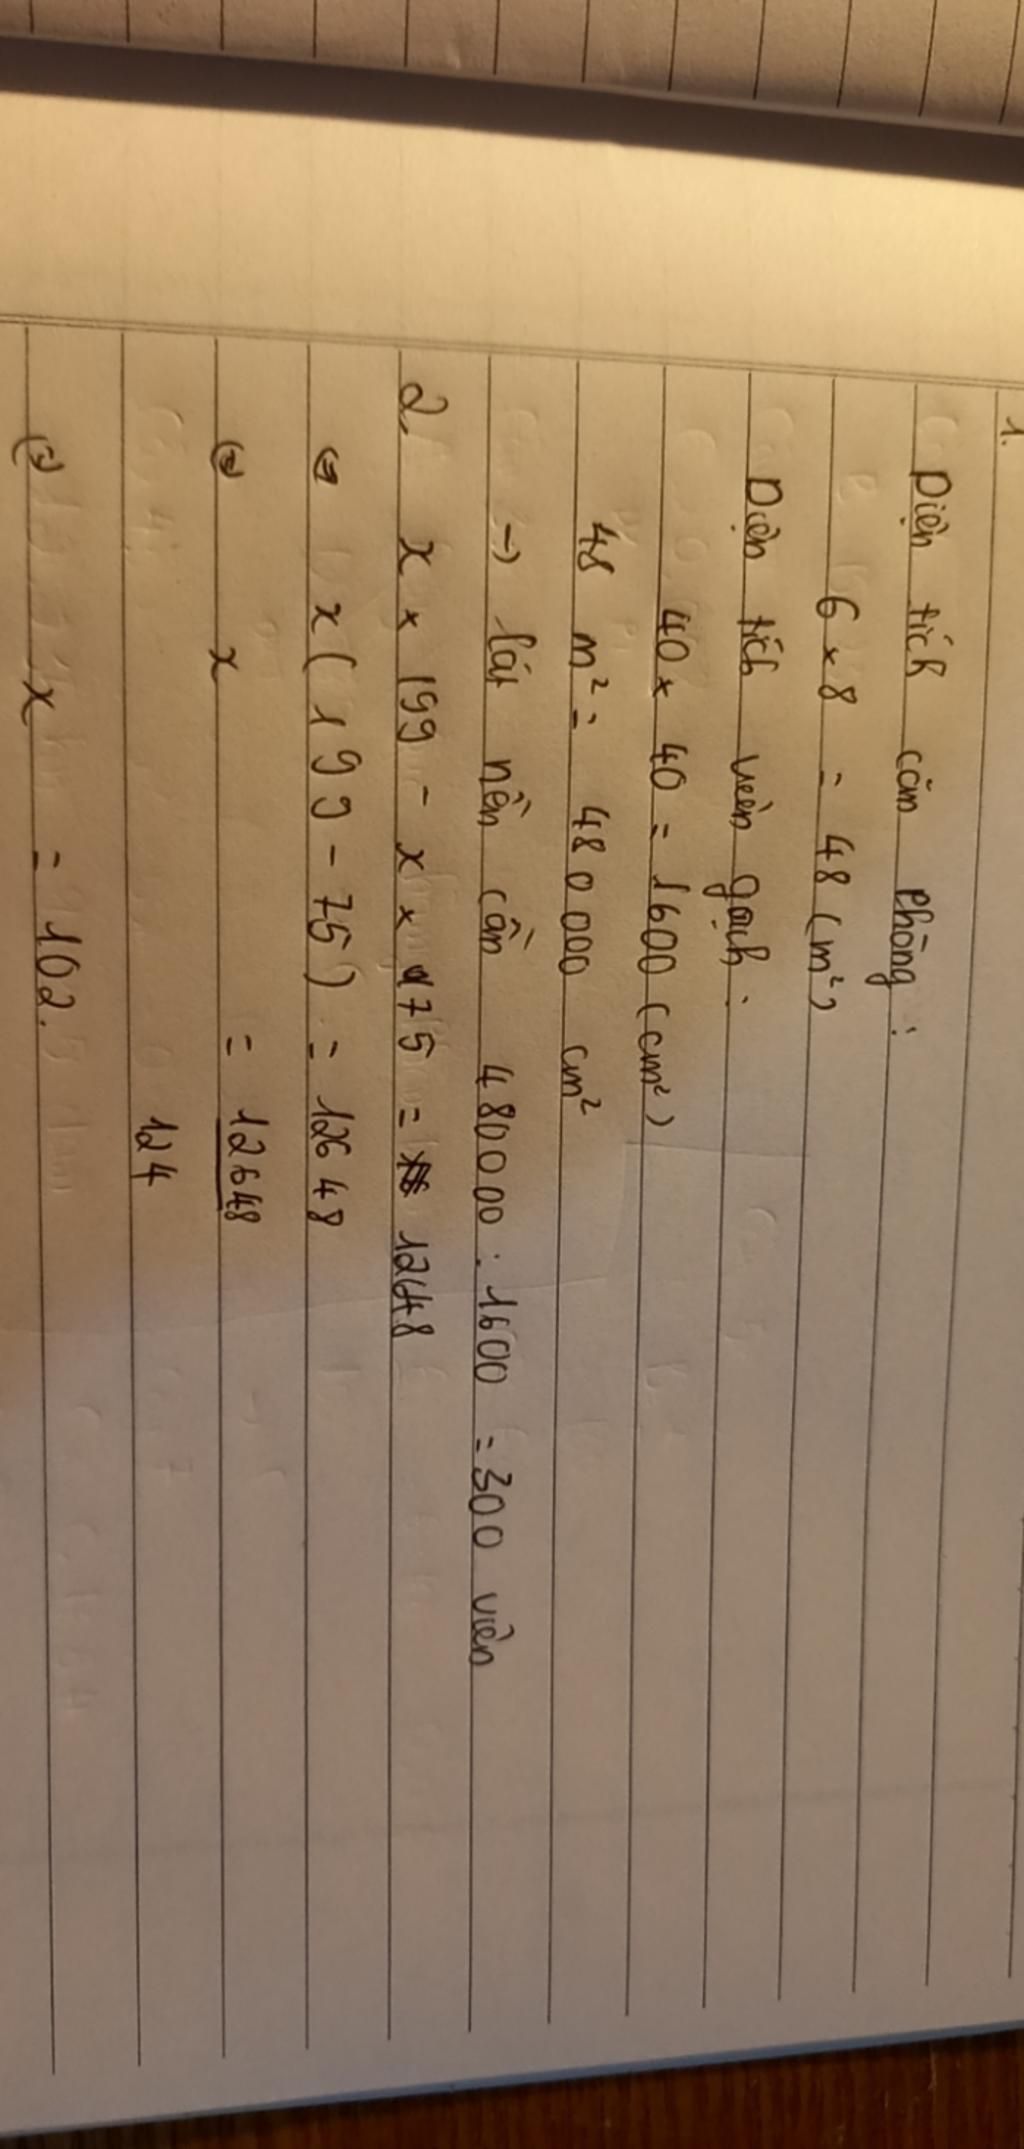 1.
Diện tích căn phòng :
6 × 8 = 48 (m²)
Diện tích viên gạch :
40 × 40 = 1600 (cm²)
48 m² = 480000 cm²
→ lát nền cần 480000 : 1600 = 300 viên
2. x × 199 - x × 75 = 12648
⇔ x ( 199 - 75 ) = 12648
⇔ x = 12648
124
⇔ x = 102.